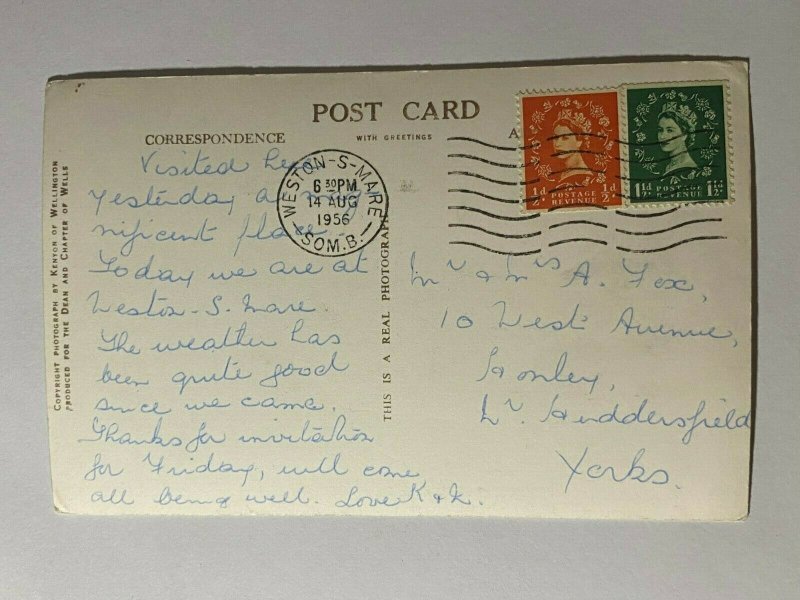 POST CARD
CORRESPONDENCE
WITH GREETINGS
A
COPYRIGHT PHOTOGRAPH BY KENYON OF WELLINGTON
PRODUCED FOR THE DEAN AND CHAPTER OF WELLS
THIS IS A REAL PHOTOGRAPH
WESTON-S-MARE
6 30PM
14 AUG
1956
SOM.B.
½d POSTAGE REVENUE ½d
1½d POSTAGE REVENUE 1½d
Visited here
yesterday a mag-
nificent place.
Today we are at
Weston-S. Mare.
The weather has
been quite good
since we came.
Thanks for invitation
for Friday, will come
all being well. Love K & L.
Mr & Mrs A. Fox,
10 West Avenue,
Honley,
Nr. Huddersfield
Yorks.